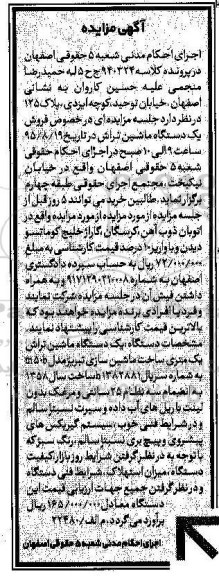 آگهی مزایده
اجرای احکام مدنی شعبه ۵ حقوقی اصفهان
در پرونده کلاسه ۹۴۰۳۲۴ ج ح ۵ له حمیدرضا
منجمی علیه حسین کاروان به نشانی
اصفهان، خیابان توحید، کوچه ایزدی، پلاک ۱۲۵
در نظر دارد جلسه مزایده ای در خصوص فروش
یک دستگاه ماشین تراش در تاریخ ۹۵/۸/۱۹
ساعت ۹ الی ۱۰ صبح در اجرای احکام حقوقی
شعبه ۵ حقوقی اصفهان واقع در خیابان
نیکبخت، مجتمع اجرای حقوقی طبقه چهارم
برگزار نماید. طالبین خرید می توانند ۵ روز قبل از
جلسه مزایده از مورد مزایده واقع در
اتوبان ذوب آهن، کرسگان، گاراژ خلیج کوماتسو
دیدن و با واریز ۱۰ درصد قیمت کارشناسی به مبلغ
ریال به حساب سپرده دادگستری
اصفهان به شماره و به همراه
داشتن فیش آن در جلسه مزایده شرکت نمایند
و فرد یا افرادی برنده مزایده خواهند بود که
بالاترین قیمت کارشناسی را پیشنهاد نمایند.
مشخصات دستگاه: یک دستگاه ماشین تراش
یک متری ساخت ماشین سازی تبریز مدل
به شماره سریال ساخت سال ۱۳۵۸
به انضمام سه نظام ۲۵ سانتی و مرغک بدون
لینت با ریل های آب داده و سپرت نسبتا سالم
و در شرایط فنی خوب، سیستم گیربکس های
پیشروی و پیچ بری نسبتا سالم، رنگ سبز که
با توجه به در نظر گرفتن شرایط روز بازار، کیفیت
دستگاه، میزان استهلاک، شرایط فنی دستگاه
و در نظر گرفتن جمیع جهات ارزیابی قیمت این
دستگاه معادل ۱۶۵/۰۰۰/۰۰۰ ریال
برآورد می گردد. م الف/ ۲۲۴۸۰
اجرای احکام مدنی شعبه ۵ حقوقی اصفهان